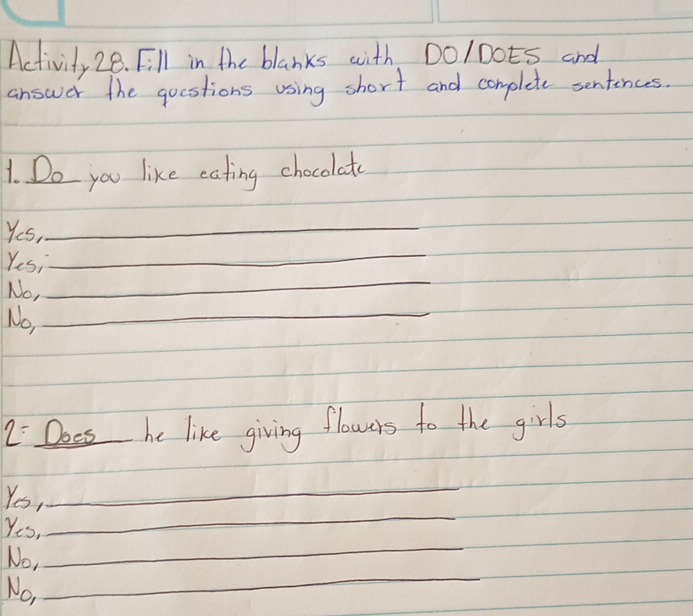 Activity 28. Fill in the blanks with DO/DOES and
answer the questions using short and complete sentences.
1. Do you like eating chocolate
Yes,
Yes,
No,
No,
2- Does he like giving flowers to the girls
Yes,
Yes,
No,
No,